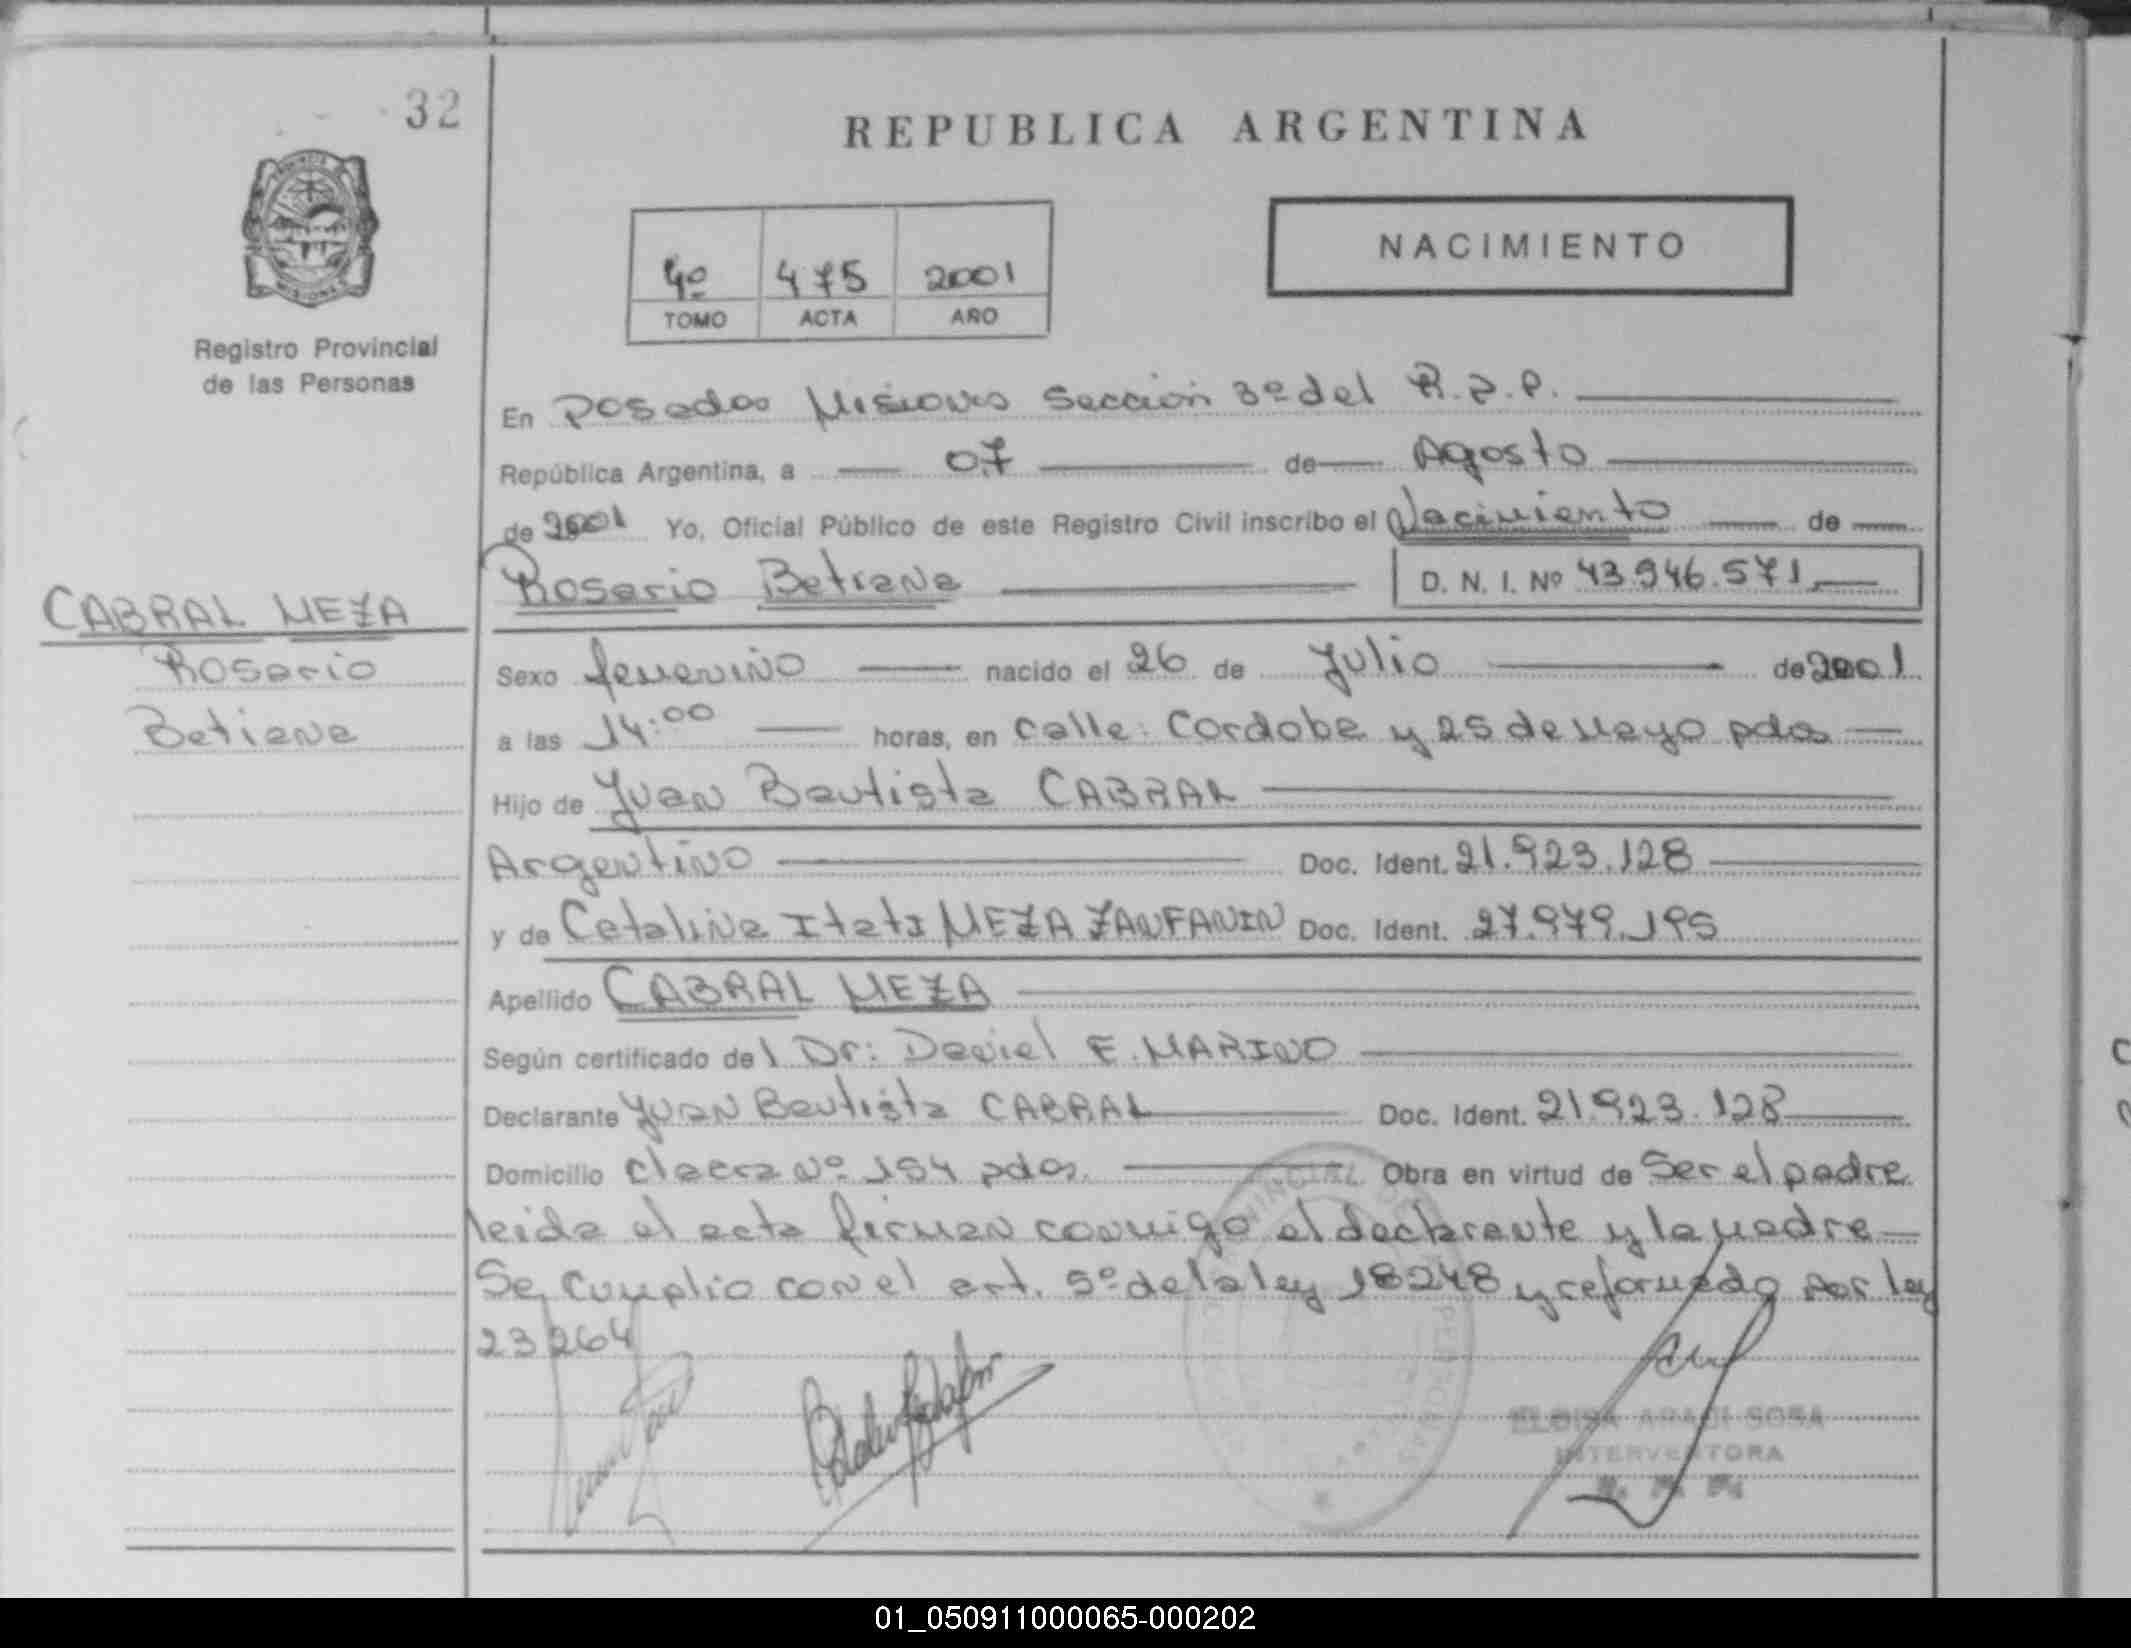 32
REPUBLICA ARGENTINA
NACIMIENTO
4º 475 2001
TOMO ACTA AÑO
Registro Provincial
de las Personas
En Posadas Misiones Sección 3º del R.P.P.
República Argentina, a 07 de Agosto
de 2001 Yo, Oficial Público de este Registro Civil inscribo el Nacimiento de
Rosario Betiana D. N. I. Nº 43.946.571
CABRAL MEZA
Rosario
Betiana
Sexo femenino nacido el 26 de Julio de 2001
a las 14:00 horas, en calle: Cordoba y 25 de Mayo pdas
Hijo de Juan Bautista CABRAL
Argentino Doc. Ident. 21.923.128
y de Catalina Itati MEZA ZANFANIN Doc. Ident. 27.979.195
Apellido CABRAL MEZA
Según certificado del Dr: Daniel E. MARINO
Declarante Juan Bautista CABRAL Doc. Ident. 21.923.128
Domicilio chacra nº 154 pdas. Obra en virtud de Ser el padre
leida el acta firman conmigo el declarante y la madre
Se cumplio con el art. 5º de la ley 18248 y reformada por ley
23264
ELOISA SOSA
INTERVENTORA
01_050911000065-000202